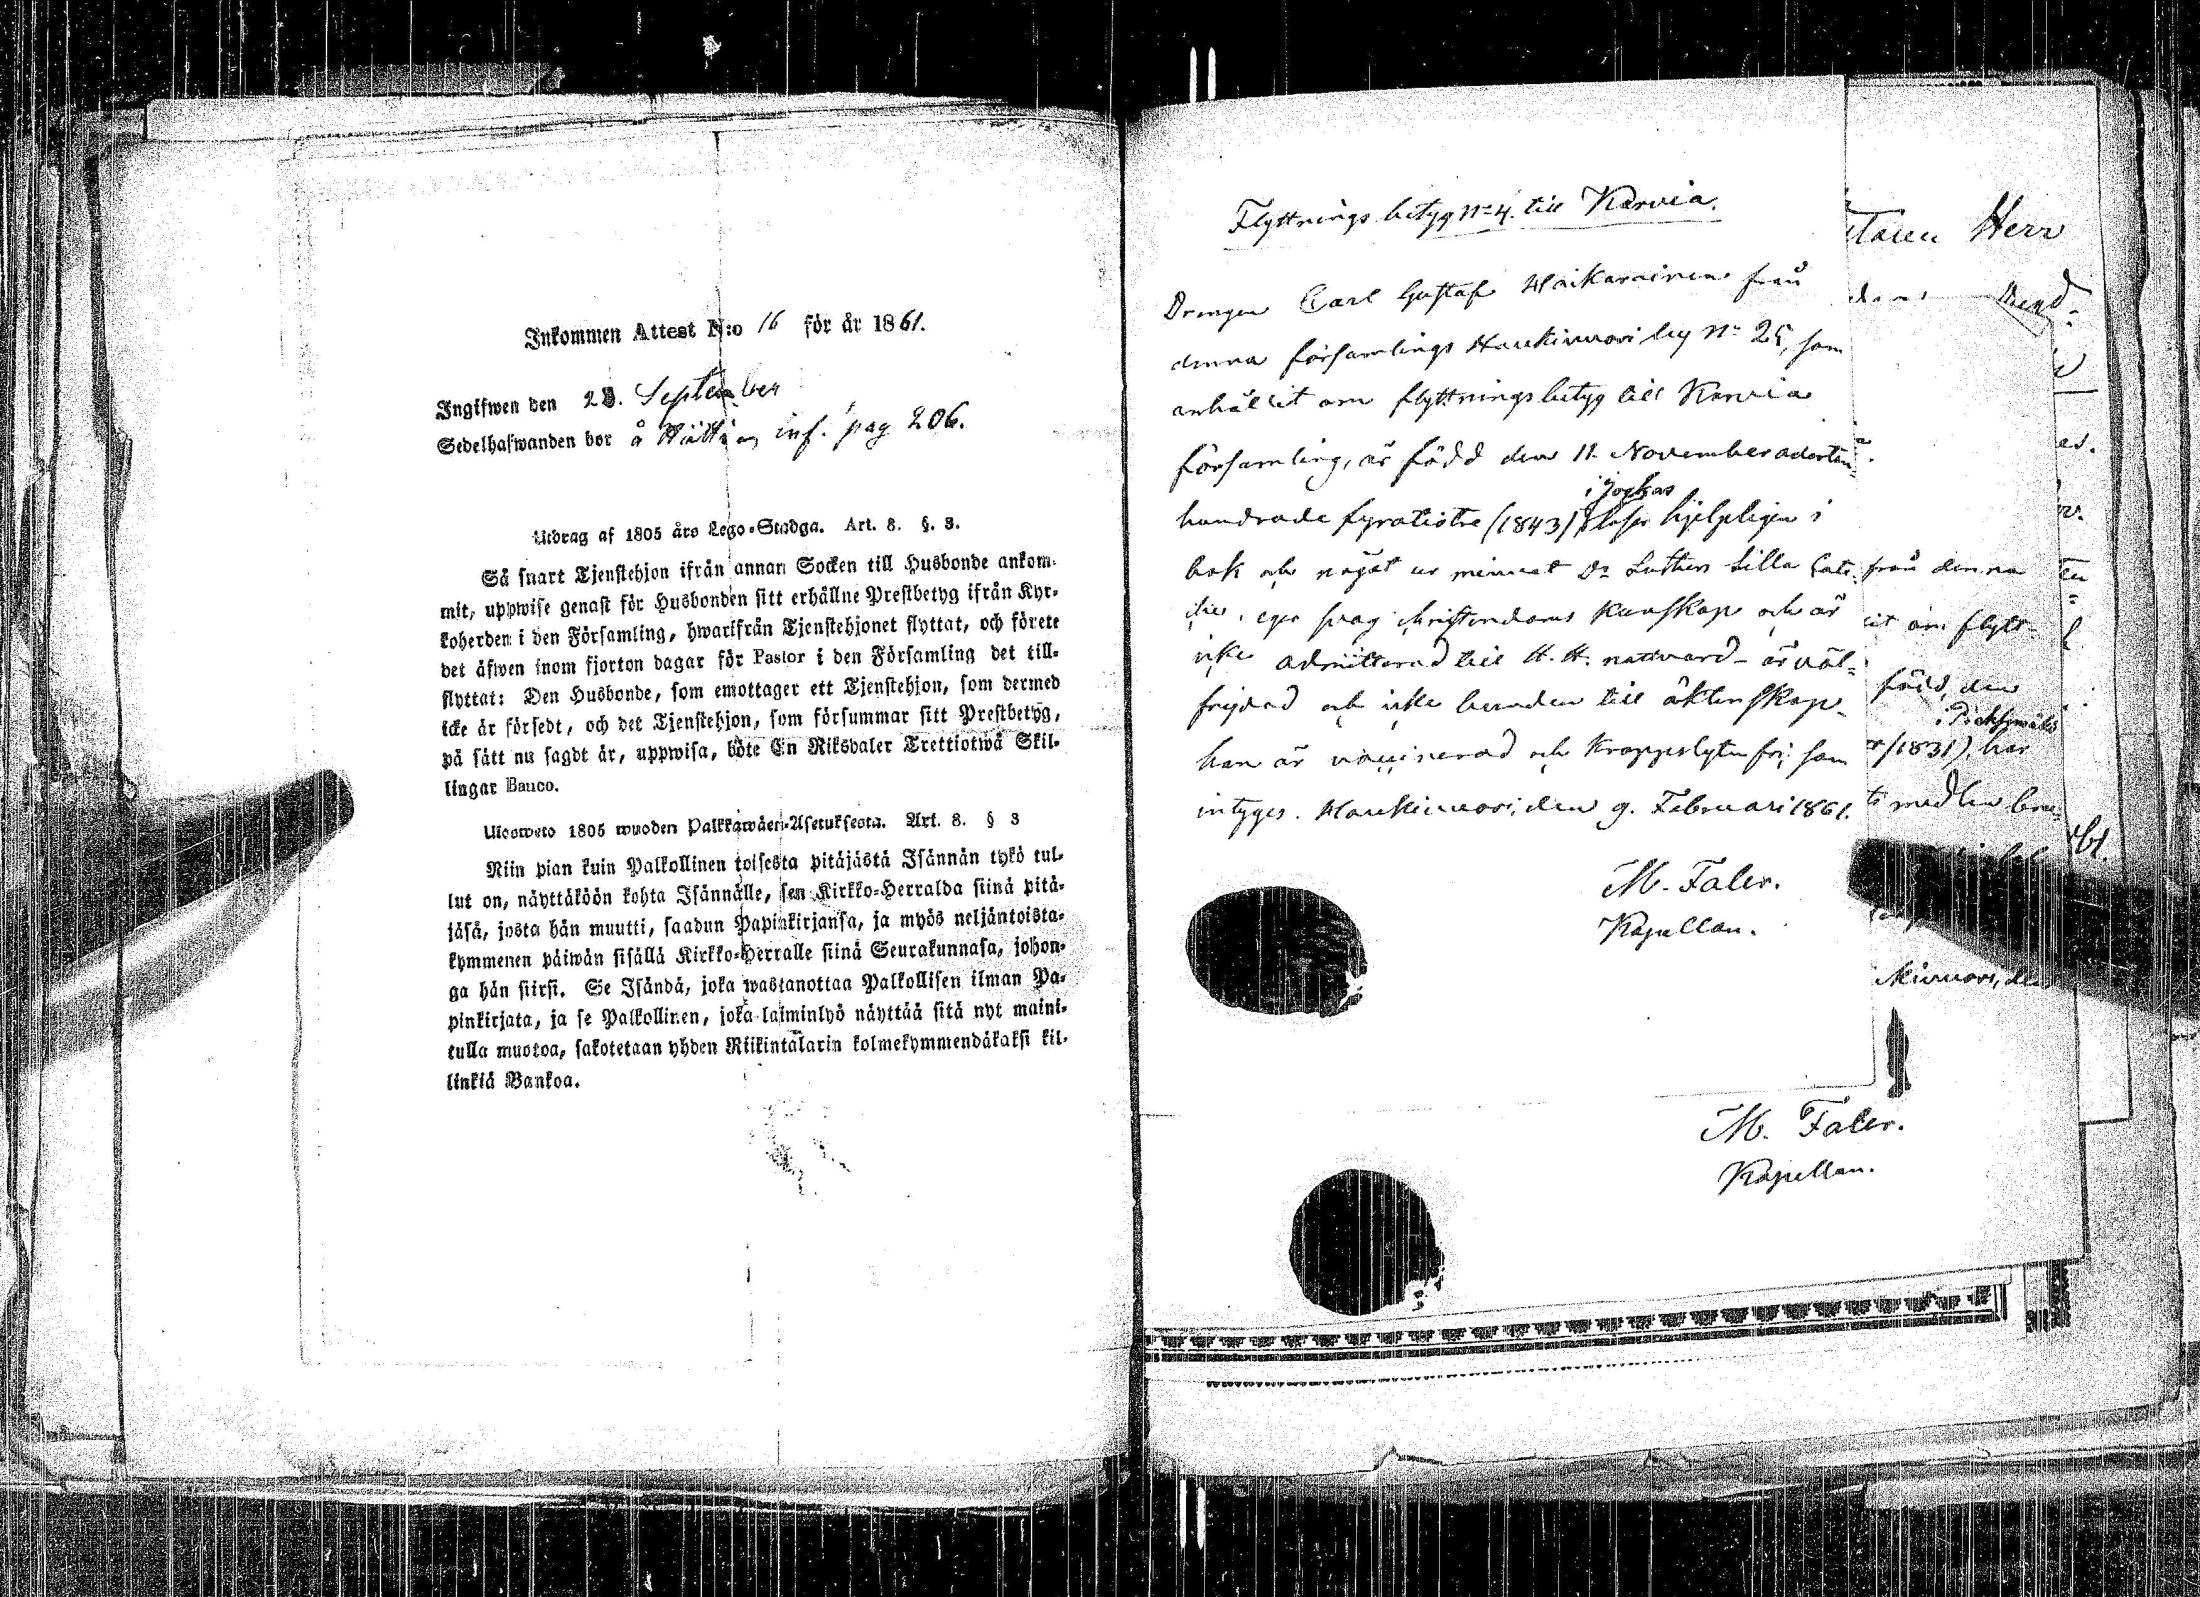 Inkommen Attest N:o 16 för år 1861.
Ingifwen den 28. September
Sedelhafwanden bor å inf. pag 206.
Utdrag af 1805 års Lego-Stadga. Art. 8. §. 3.
Så snart Tjenstehjon ifrån annan Socken till Husbonde ankom-
mit, uppwise genast för Husbonden sitt erhållne Prestbetyg ifrån Kyr-
koherden i den Församling, hwarifrån Tjenstehjonet flyttat, och förete
det äfwen inom fjorton dagar för Pastor i den Församling det till-
flyttat: Den Husbonde, som emottager ett Tjenstehjon, som dermed
icke är försedt, och det Tjenstehjon, som försummar sitt Prestbetyg,
på sätt nu sagdt är, uppwisa, böte En Riksdaler Trettiotwå Skil-
lingar Banco.
Ulosweto 1805 wuoden Palkkawäen-Asetuksesta. Art. 8. § 3
Niin pian kuin Palkollinen toisesta pitäjästä Isännän tykö tul-
lut on, näyttäköön kohta Isännälle, sen Kirkko-Herralda siinä pitä-
jäsä, josta hän muutti, saadun Papinkirjansa, ja myös neljäntoista-
kymmenen päiwän sisällä Kirkko-Herralle siinä Seurakunnasa, johon-
ga hän siirsi. Se Isändä, joka wastanottaa Palkollisen ilman Pa-
pinkirjata, ja se Palkollinen, joka laiminlyö näyttää sitä nyt maini-
tulla muotoa, sakotetaan yhden Riikintalarin kolmekymmendäkaksi kil-
linkiä Bankoa.
Flyttnings betyg No 4. till Karvia.
Drengen Carl Gustaf Haikarainen från
denna församlings Haukivuori by No 25, som
anhållit om flyttningsbetyg till Karvia
församling, är född den 11. November aderton
i Jockas
hundrade fyratiotre (1843) läser hjelpligen i
bok och något ur minnet Dr Luthers Lilla Cate-
ches, eger svag christendoms kunskap och är
icke admitterad till H. H. nattvard - är väl-
frejdad och icke bunden till äktenskap -
han är vaccinerad och kroppslytenfri; som
intyges. Haukivuori, den 9. Februari 1861.
M. Faler.
Kapellan.
Herr
från denna
it om flytt-
född, den
i Pieksämäki
(1831), har
kivuori, den
M. Faler.
Kapellan.